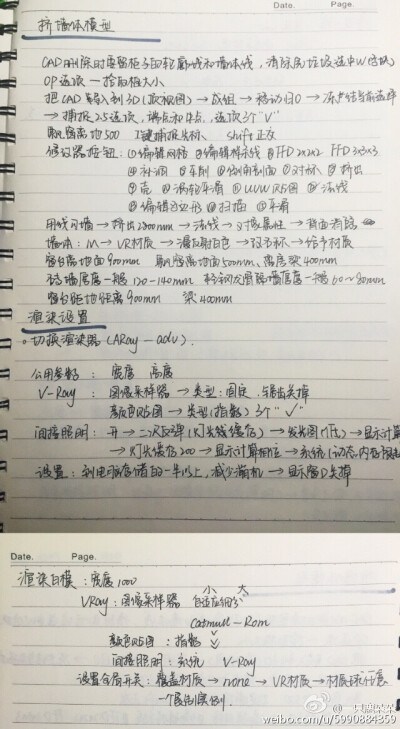 Date.    Page.
挤墙体模型
CAD删除时要留柜子的轮廓线和墙体线，清除层垃圾选中W
OP选项 — 拾取框大小
把CAD导入到3D(顶视图) → 成组 → 移动归0 → 冻结当前选择
→ 捕捉2.5选项，端点和中点，选项3个"V"
踢脚离地500 捕捉鼠标 shift正交
修改器按钮：①编辑网格 ②编辑样条线 ③FFD 2x2x2 FFD 3x3x3
④补洞 ⑤车削 ⑥倒角剖面 ⑦对称 ⑧挤出
⑨壳 ⑩涡轮平滑 UVW贴图 法线
编辑多边形 扫描 平滑
用线勾墙 → 挤出2800mm → 法线 → 对象属性 → 背面消隐
墙体：M → VR材质 → 漫反射白色 → 双面标 → 给予材质
窗台离地面900mm 离地面500mm，离层梁400mm
砖墙厚度一般120-140mm 轻钢龙骨隔墙厚度一般60~80mm
窗台距地距离900mm 梁400mm
渲染设置
。切换渲染器 (ARay-adv).
公用参数：宽度 高度
V-Ray：图像采样器 → 类型：固定，输出关掉
颜色贴图 → 类型(指数) 3个"✓"
间接照明：开 → 二次反弹(灯光缓存) → 发光图(低) → 显示计算
→ 灯光缓存200 → 显示计算相位 → 系统(动态，内存
设置：利用内存储的一半以上，减少漏机 → 显示窗口关掉
Date.    Page.
渲染白模：宽度1000
小 大
VRay：图像采样器 自适应细分
Catmull-Rom
颜色贴图：指数
间接照明：系统 V-Ray
设置全局开关：覆盖材质 → none → VR材质 → 材质球任意
一个复制实例.
weibo.com/u/5990884359